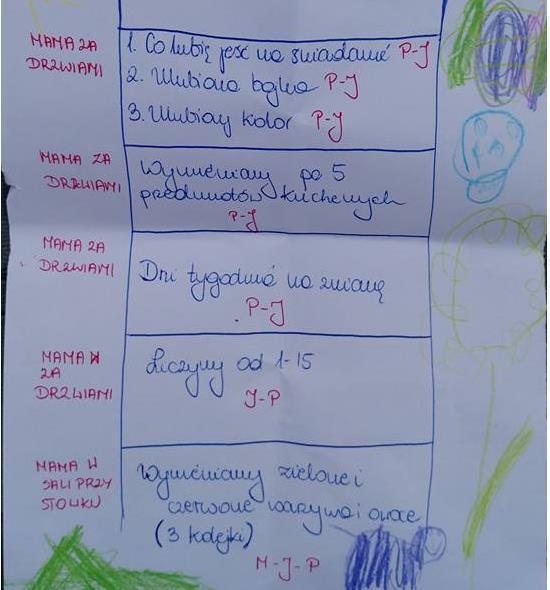 MAMA ZA
DRZWIAMI
1. Co lubię jeść na śniadanie P-J
2. Ulubiona bajka P-J
3. Ulubiony kolor P-J
MAMA ZA
DRZWIAMI
Wymieniamy po 5
przedmiotów kuchennych
P-J
MAMA ZA
DRZWIAMI
Dni tygodnia na zmianę
P-J
MAMA W
ZA
DRZWIAMI
Liczymy od 1-15
J-P
MAMA W
SALI PRZY
STOLIKU
Wymieniamy zielone i
czerwone warzywa i owoce
(3 kolejki)
M-J-P